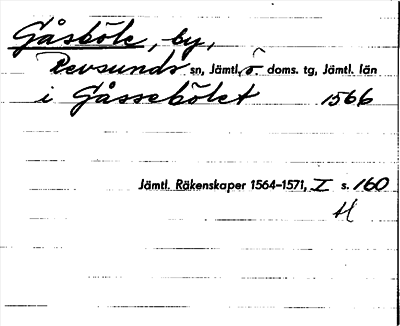 Gåsböle, by,
Revsunds sn, Jämtl. ö. doms. tg, Jämtl. län
i Gåssebölet 1566
Jämtl. Räkenskaper 1564-1571, I s. 160